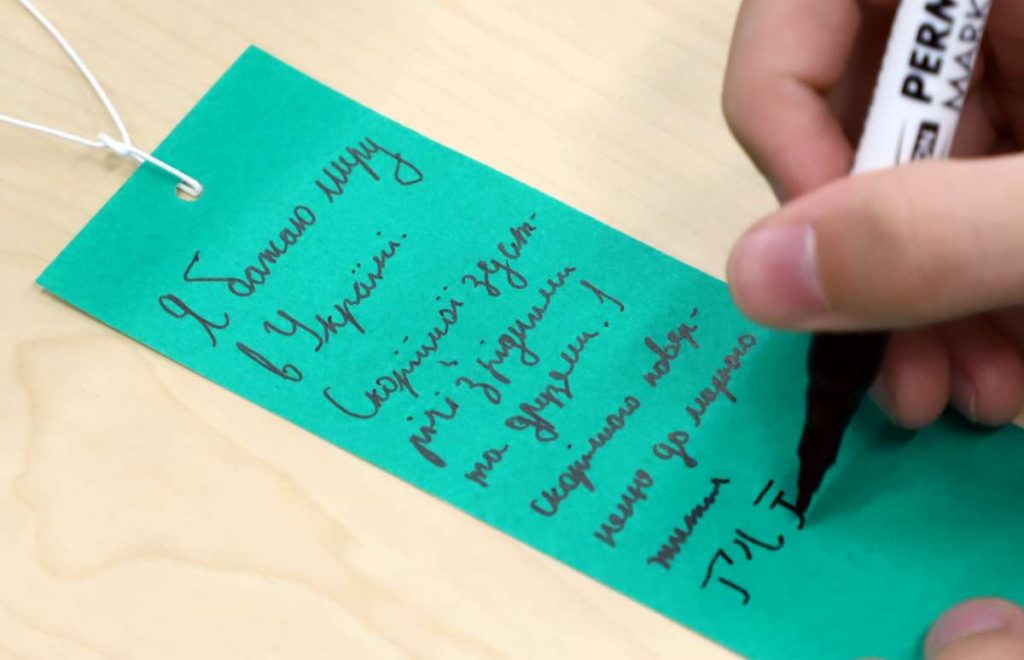 Я бажаю миру
в Україні.
Скорійшої зуст-
річі з рідними
та друзями!
скорішого повер-
нення до мирного
життя
PERM
MARK